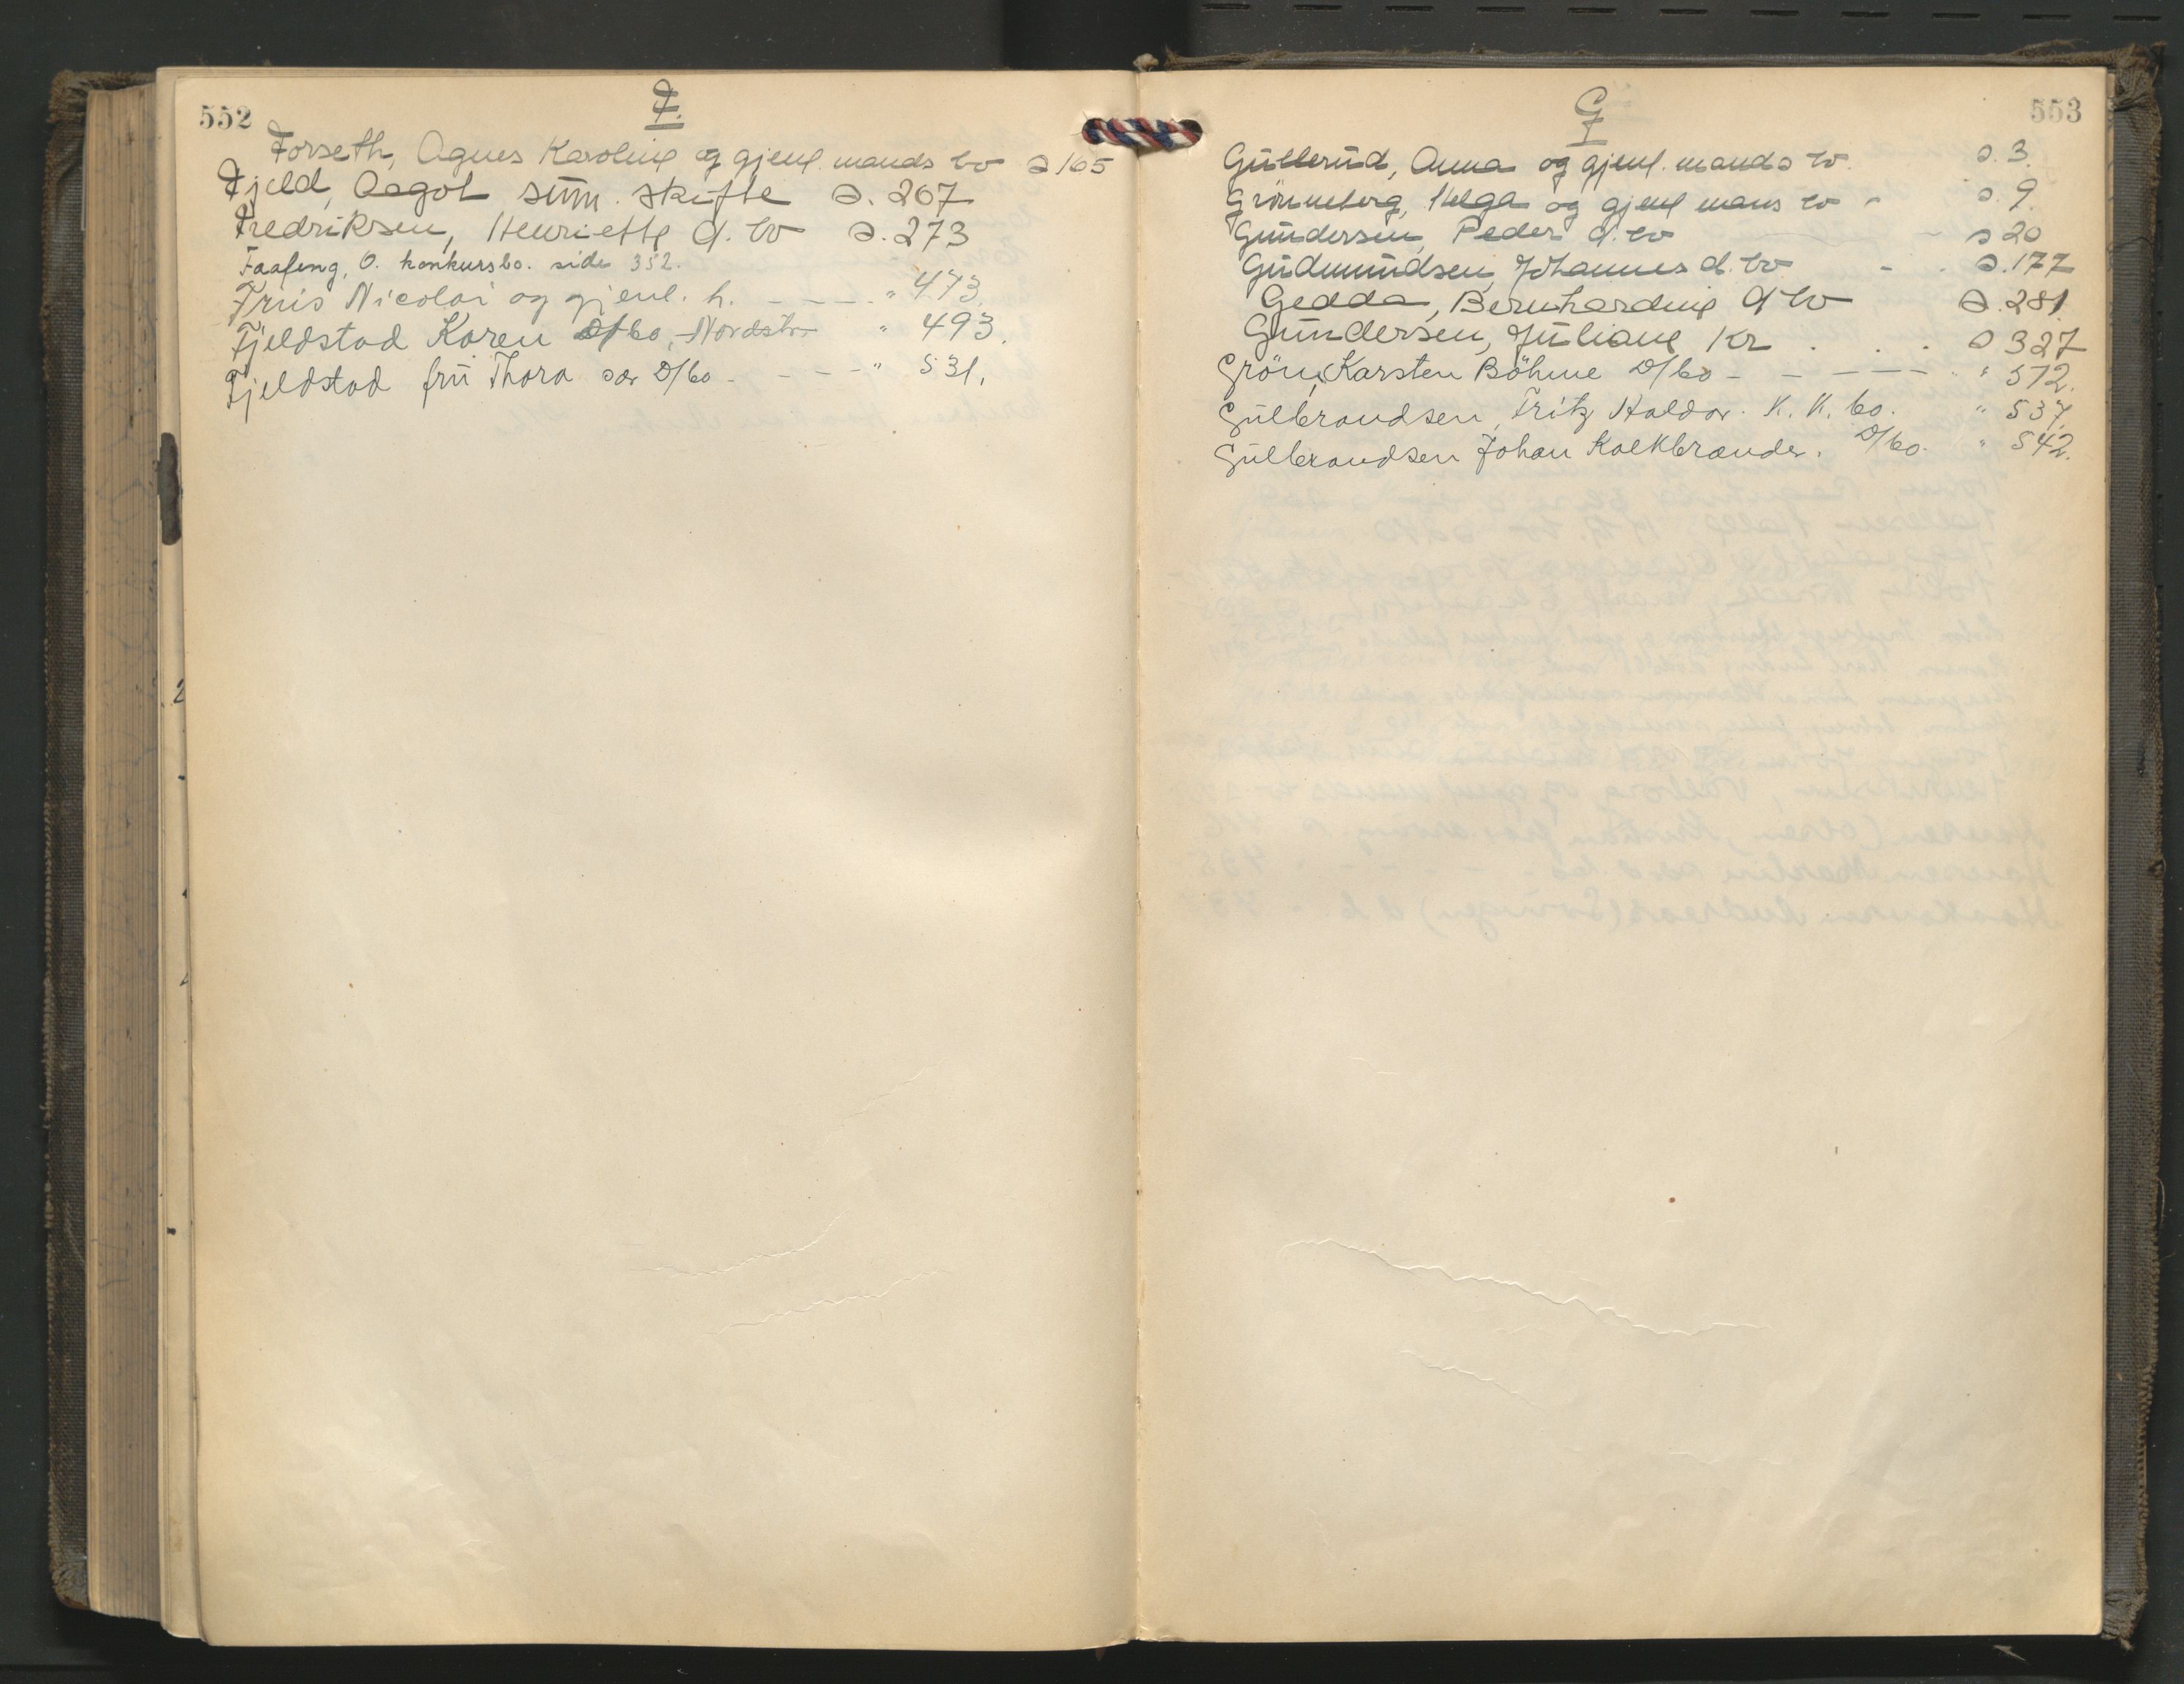 552
F.
Forseth, Agnes Karoline og gjenl. mands bo s 165
Fjeld, Aagot sum. skifte s. 267
Fredriksen, Henriette d. bo s. 273
Faafeng, O. konkursbo. side 352.
Friis Nicolai og gjenl. h. - - - - " 473.
Fjeldstad Karen D/bo, Nordstr " 493.
Fjeldstad frü Thora sær D/bo - - - - " 531.
553
G
Gullerud, Anna og gjenl. mands bo. s. 3.
Grönneberg, Helga og gjenl mans bo - s. 9.
Gundersen, Peder d. bo - s 20
Gudmundsen, Johannes d. bo - - s. 177
Gedda, Bernhardine d bo s. 281.
Gundersen, Juliane Kr . . . s 327
Grön, Karsten Böhme D/bo - - - - - " 512.
Gulbrandsen, Fritz Haldor. K. K. bo. " 537.
Gulbrandsen Johan Kalkbrænder. D/bo. " 542.